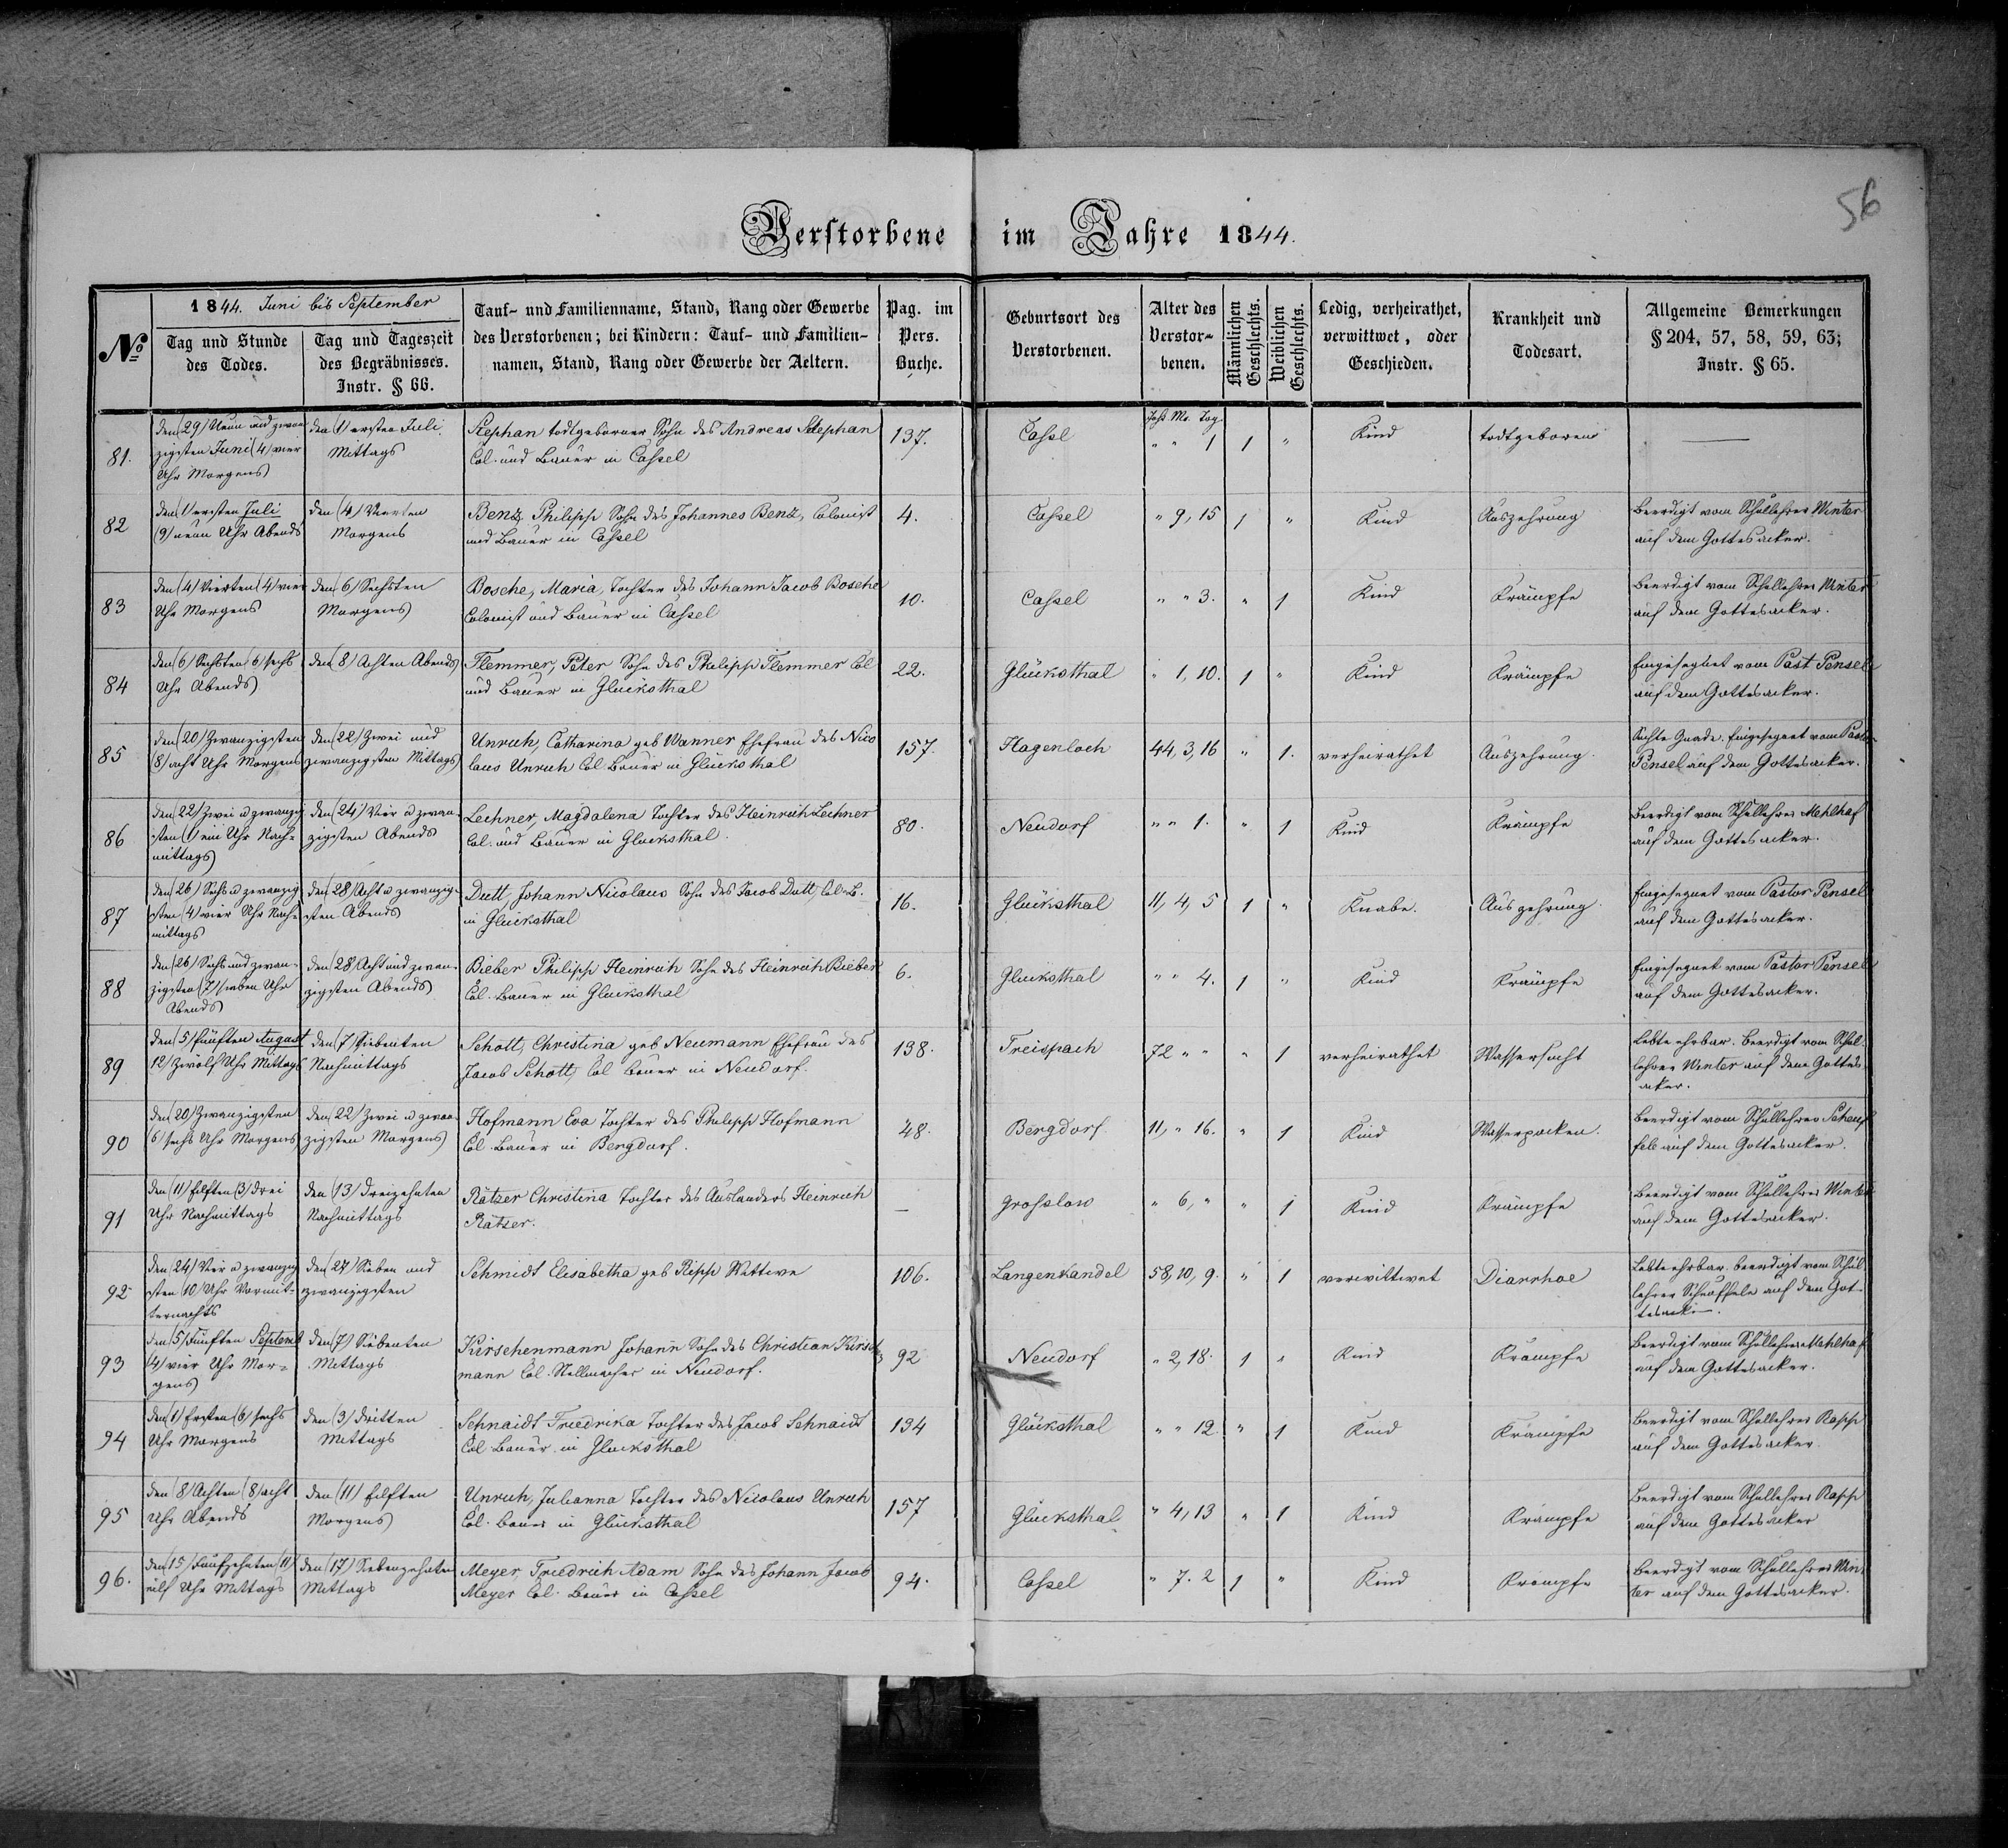 56
Verstorbene im Jahre 1844.
1844. Juni bis September
Nº
Tag und Stunde
des Todes.
Tag und Tageszeit
des Begräbnisses.
Instr. § 66.
Tauf- und Familienname, Stand, Rang oder Gewerbe
des Verstorbenen; bei Kindern: Tauf- und Familien-
namen, Stand, Rang oder Gewerbe der Aeltern.
Pag. im
Pers.
Buche.
Geburtsort des
Verstorbenen.
Alter des
Verstor-
benen.
Männlichen
Geschlechts.
Weiblichen
Geschlechts.
Ledig, verheirathet,
verwittwet, oder
Geschieden.
Krankheit und
Todesart.
Allgemeine Bemerkungen
§ 204, 57, 58, 59, 63;
Instr. § 65.
81.
den (29) Neun und zwan
zigsten Juni (4) vier
Uhr Morgens
den (1) ersten Juli
Mittags
Stephan todtgeborner Sohn des Andreas Stephan
Col. und Bauer in Cassel
137.
Cassel
Jah. Mo. Tag.
" " 1
1
"
Kind
todtgeboren
82
den (1) ersten Juli
(9) neun Uhr Abends
den (4) Vierten
Morgens
Benz Philipp Sohn des Johannes Benz, Colonist
und Bauer in Cassel
4.
Cassel
" 9, 15
1
"
Kind
Auszehrung
Beerdigt vom Schullehrer Winter
auf dem Gottesacker.
83
den (4) Vierten (4) vier
Uhr Morgens
den (6) Sechsten
Morgens
Bosche, Maria, Tochter des Johann Jacob Bosche
Colonist und Bauer in Cassel
10.
Cassel
" " 3.
"
1
Kind
Krämpfe
Beerdigt vom Schullehrer Winter
auf dem Gottesacker.
84
den (6) Sechsten (6) sechs
Uhr Abends
den (8) Achten Abends
Flemmer, Peter Sohn des Philipp Flemmer Col
und Bauer in Glücksthal
22.
Glücksthal
" 1, 10.
1
"
Kind
Krämpfe
Eingesegnet vom Past Pensel
auf dem Gottesacker.
85
den (20) Zwanzigsten
(8) acht Uhr Morgens
den (22) Zwei und
zwanzigsten Mittags
Unruh, Catharina geb Wanner Ehefrau des Nico
laus Unruh Col. Bauer in Glücksthal
157.
Hagenloch
44, 3, 16
"
1.
verheirathet
Auszehrung.
Suchte Gnade. Eingesegnet vom Pastor
Pensel auf dem Gottesacker.
86
den (22) Zwei u zwanzig
sten (1) ein Uhr Nach-
mittags
den (24) Vier u zwan-
zigsten Abends
Lechner, Magdalena Tochter des Heinrich Lechner
Col. und Bauer in Glücksthal.
80.
Neudorf
" " 1.
"
1
Kind
Krämpfe
Beerdigt vom Schullehrer Mehlhaf
auf dem Gottesacker.
87
den (26) Sechs u zwanzig
sten (4) vier Uhr Nach-
mittags
den (28) Acht u zwanzig-
sten Abends
Dutt, Johann Nicolaus Sohn des Jacob Dutt, Col. B.
in Glücksthal
16.
Glücksthal
11, 4, 5
1
"
Knabe.
Auszehrung.
Eingesegnet vom Pastor Pensel
auf dem Gottesacker.
88
den (26) Sechs und zwan-
zigsten (7) sieben Uhr
Abends
den (28) Acht und zwan-
zigsten Abends
Bieber Philipp Heinrich Sohn des Heinrich Bieber
Col. Bauer in Glücksthal
6.
Glücksthal
" " 4.
1
"
Kind
Krämpfe
Eingesegnet vom Pastor Pensel
auf dem Gottesacker.
89
den (5) fünften August
12) Zwölf Uhr Mittags
den (7) Siebenten
Nachmittags
Schott, Christina geb Neumann Ehefrau des
Jacob Schott, Col Bauer in Neudorf.
138.
Treispach
72 " "
"
1
verheirathet
Wassersucht
Lebte ehrbar. Beerdigt vom Schul-
lehrer Winter auf dem Gottes
acker.
90
den (20) Zwanzigsten
(6) sechs Uhr Morgens
den (22) Zwei u zwan-
zigsten Morgens
Hofmann Eva Tochter des Philipp Hofmann
Col. Bauer in Bergdorf.
48.
Bergdorf
11, " 16.
"
1
Kind
Wasserpocken.
Beerdigt vom Schullehrer Scheuf
fele auf dem Gottesacker.
91
den (11) Eilften (3) drei
Uhr Nachmittags
den (13) Dreizehnten
Nachmittags
Rätzer Christina Tochter des Auslanders Heinrich
Rätzer.
—
Grosslow
" 6, "
"
1
Kind
Krämpfe
Beerdigt vom Schullehrer Winter
auf dem Gottesacker.
92
den (24) Vier u zwanzig
sten (10) Uhr Vormit-
ternachts
den (27) Sieben und
zwanzigsten
Schmidt Elisabetha geb Ripp Wittwe
106.
Langenkandel
58, 10, 9.
"
1
verwittwet
Diarrhoe
Lebte ehrbar. Beerdigt vom Schul
lehrer Scheuffele auf dem Got-
tesacker.
93
den (5) Fünften Septemb
(4) vier Uhr Mor-
gens
den (7) Siebenten
Mittags
Kirschenmann Johann Sohn des Christian Kirsch
mann Col. Stellmacher in Neudorf.
92
Neudorf
" 2, 18.
1
"
Kind
Krämpfe
Beerdigt vom Schullehrer Mehlhaf
auf dem Gottesacker.
94
den (1) Ersten (6) sechs
Uhr Morgens
den (3) Dritten
Mittags
Schnaidt Friedrika Tochter des Jacob Schnaidt
Col Bauer in Glücksthal
134
Glücksthal
" " 12
"
1
Kind
Krämpfe
Beerdigt vom Schullehrer Rapp
auf dem Gottesacker.
95
den (8) Achten (8) acht
Uhr Abends
den (11) Eilften
Morgens
Unruh, Julianna Tochter des Nicolaus Unruh
Col. Bauer in Glücksthal
157
Glücksthal
" 4, 13
"
1
Kind
Krämpfe
Beerdigt vom Schullehrer Rapp
auf dem Gottesacker
96.
den (15) Fünfzehnten (11)
eilf Uhr Mittags
den (17) Siebenzehnten
Mittags
Meyer Friedrich Adam Sohn des Johann Jacob
Meyer Col. Bauer in Cassel
94.
Cassel
" 7. 2
1
"
Kind
Krämpfe
Beerdigt vom Schullehrer Win
ter auf dem Gottesacker.